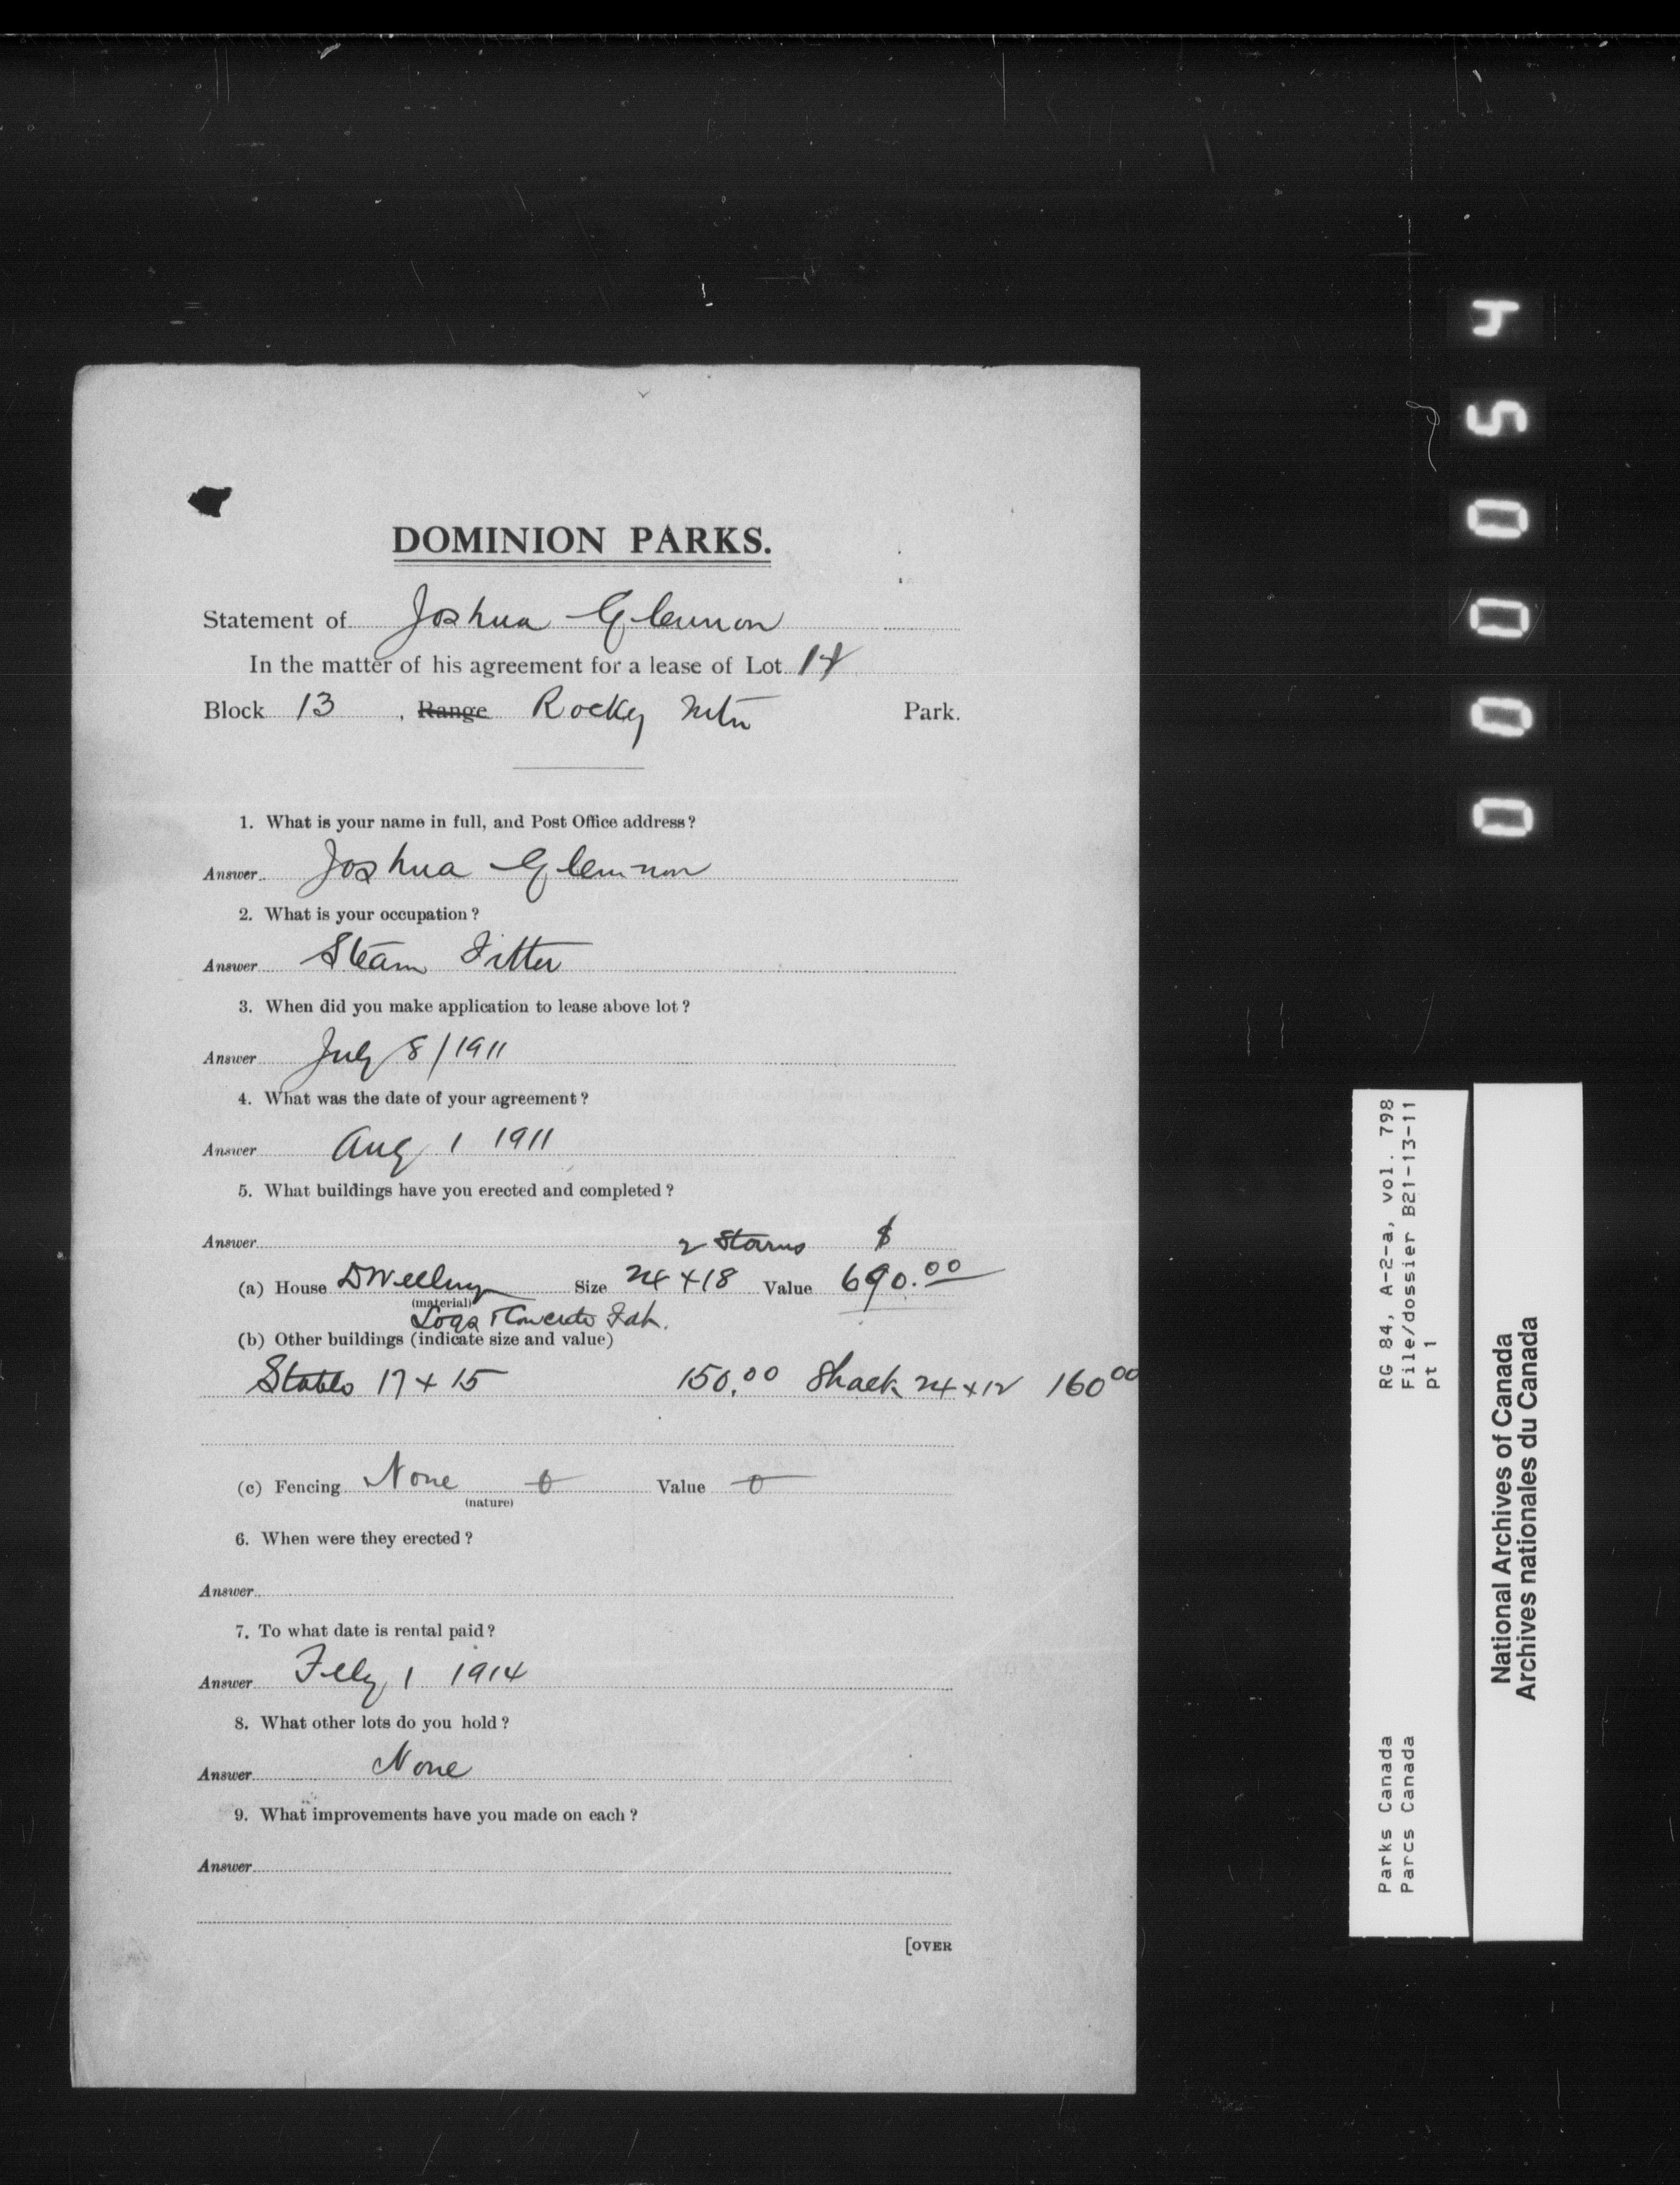 DOMINION PARKS.
Statement of Joshua Glennon
In the matter of his agreement for a lease of Lot
Block 13 , Range Rocky Mtn Park.
1. What is your name in full, and Post Office address?
Answer Joshua Glennon
2. What is your occupation?
Answer Steam Fitter
3. When did you make application to lease above lot?
Answer July 8/1911
4. What was the date of your agreement?
Answer Aug 1 1911
5. What buildings have you erected and completed?
Answer 2 $
(a) House Dwelling Size 24 x 18 Value 690.00
(material)
Logs
(b) Other buildings (indicate size and value)
Stables 17 x 15 150.00 Shack 24 x 12 160 00
(c) Fencing None 0 Value 0
(nature)
6. When were they erected?
Answer
7. To what date is rental paid?
Answer Feby 1 1914
8. What other lots do you hold?
Answer None
9. What improvements have you made on each?
Answer
[OVER
000054
RG 84, A-2-a, vol. 798
File/dossier B21-13-11
pt 1
Parks Canada
Parcs Canada
National Archives of Canada
Archives nationales du Canada